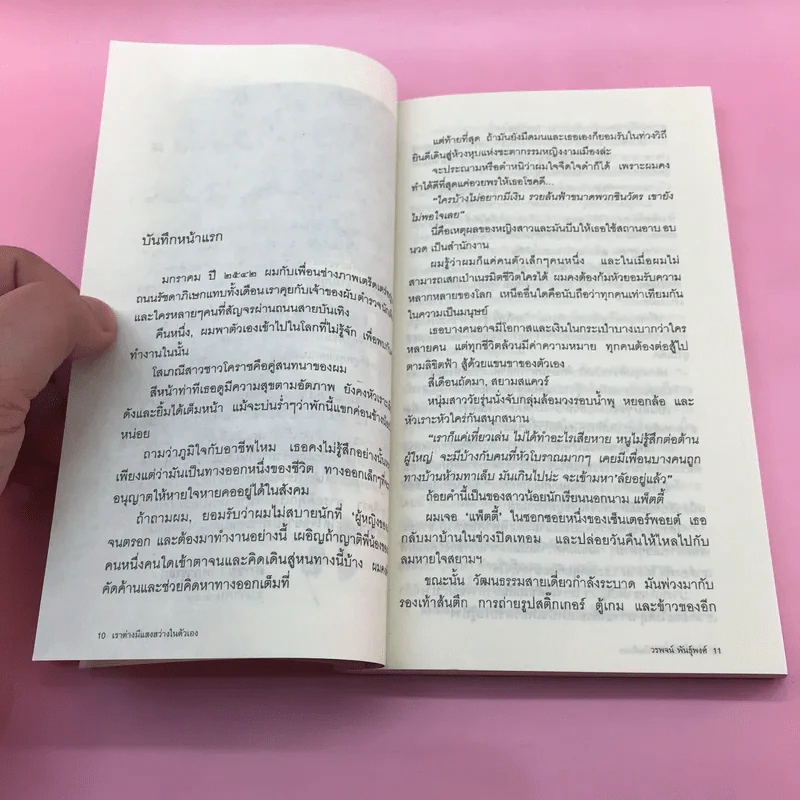 บันทึกหน้าแรก
มกราคม ปี ๒๕๔๒ ผมกับเพื่อนช่างภาพเตร็ดเตร่
ถนนรัชดาภิเษกแทบทั้งเดือนเราคุยกับเจ้าของผับตำรวจนัก
และใครหลายๆคนที่สัญจรผ่านถนนสายบันเทิง
คืนหนึ่ง, ผมพาตัวเองเข้าไปในโลกที่ไม่รู้จัก เพื่อพบ
ทำงานในนั้น
โสเภณีสาวชาวโคราชคือคู่สนทนาของผม
สีหน้าท่าทีเธอดูมีความสุขตามอัตภาพ ยังคงหัวเราะ
ดังและยิ้มได้เต็มหน้า แม้จะบ่นร่ำๆว่าพักนี้แขกค่อนข้าง
หน่อย
ถามว่าภูมิใจกับอาชีพไหม เธอคงไม่รู้สึกอย่างนั้น
เพียงแต่ว่ามันเป็นทางออกหนึ่งของชีวิต ทางออกเล็กๆที่
อนุญาตให้หายใจหายคออยู่ได้ในสังคม
ถ้าถามผม, ยอมรับว่าผมไม่สบายนักที่ 'ผู้หญิงของ
จนตรอก และต้องมาทำงานอย่างนี้ เผอิญถ้าญาติพี่น้องของ
คนหนึ่งคนใดเข้าตาจนและคิดเดินสู่หนทางนี้บ้าง ผมคง
คัดค้านและช่วยคิดหาทางออกเต็มที่
10 เราต่างมีแสงสว่างในตัวเอง
แต่ท้ายที่สุด ถ้ามันยังมืดมนและเธอเองก็ยอมรับในท่วงวิถี
ยินดีเดินสู่ห้วงหุบแห่งชะตากรรมหญิงงามเมืองล่ะ
จะประณามหรือตำหนิว่าผมใจจืดใจดำก็ได้ เพราะผมคง
ทำได้ดีที่สุดแค่อวยพรให้เธอโชคดี...
"ใครบ้างไม่อยากมีเงิน รวยล้นฟ้าขนาดพวกชินวัตร เขายัง
ไม่พอใจเลย"
นี่คือเหตุผลของหญิงสาวและมันบีบให้เธอใช้สถานอาบ อบ
นวด เป็นสำนักงาน
ผมรู้ว่าผมก็แค่คนตัวเล็กๆคนหนึ่ง และในเมื่อผมไม่
สามารถเสกเป่าเนรมิตชีวิตใครได้ ผมคงต้องก้มหัวยอมรับความ
หลากหลายของโลก เหนืออื่นใดคือนับถือว่าทุกคนเท่าเทียมกัน
ในความเป็นมนุษย์
เธอบางคนอาจมีโอกาสและเงินในกระเป๋าบางเบากว่าใคร
หลายคน แต่ทุกชีวิตล้วนมีค่าความหมาย ทุกคนต้องต่อสู้ไป
ตามลิขิตฟ้า สู้ด้วยแขนขาของตัวเอง
สี่เดือนถัดมา, สยามสแควร์
หนุ่มสาววัยรุ่นนั่งจับกลุ่มล้อมวงรอบน้ำพุ หยอกล้อ และ
หัวเราะหัวใคร่กันสนุกสนาน
"เราก็แค่เที่ยวเล่น ไม่ได้ทำอะไรเสียหาย หนูไม่รู้สึกต่อต้าน
ผู้ใหญ่ จะมีบ้างกับคนที่หัวโบราณมากๆ เคยมีเพื่อนบางคนถูก
ทางบ้านห้ามทาเล็บ มันเกินไปน่ะ จะเข้ามหา'ลัยอยู่แล้ว"
ถ้อยคำนี้เป็นของสาวน้อยนักเรียนนอกนาม แพ็ตตี้
ผมเจอ 'แพ็ตตี้' ในซอกซอยหนึ่งของเซ็นเตอร์พอยต์ เธอ
กลับมาบ้านในช่วงปิดเทอม และปล่อยวันคืนให้ไหลไปกับ
ลมหายใจสยามฯ
ขณะนั้น วัฒนธรรมสายเดี่ยวกำลังระบาด มันพ่วงมากับ
รองเท้าส้นตึก การถ่ายรูปสติ๊กเกอร์ ตู้เกม และข้าวของอีก
วรพจน์ พันธุ์พงศ์ 11